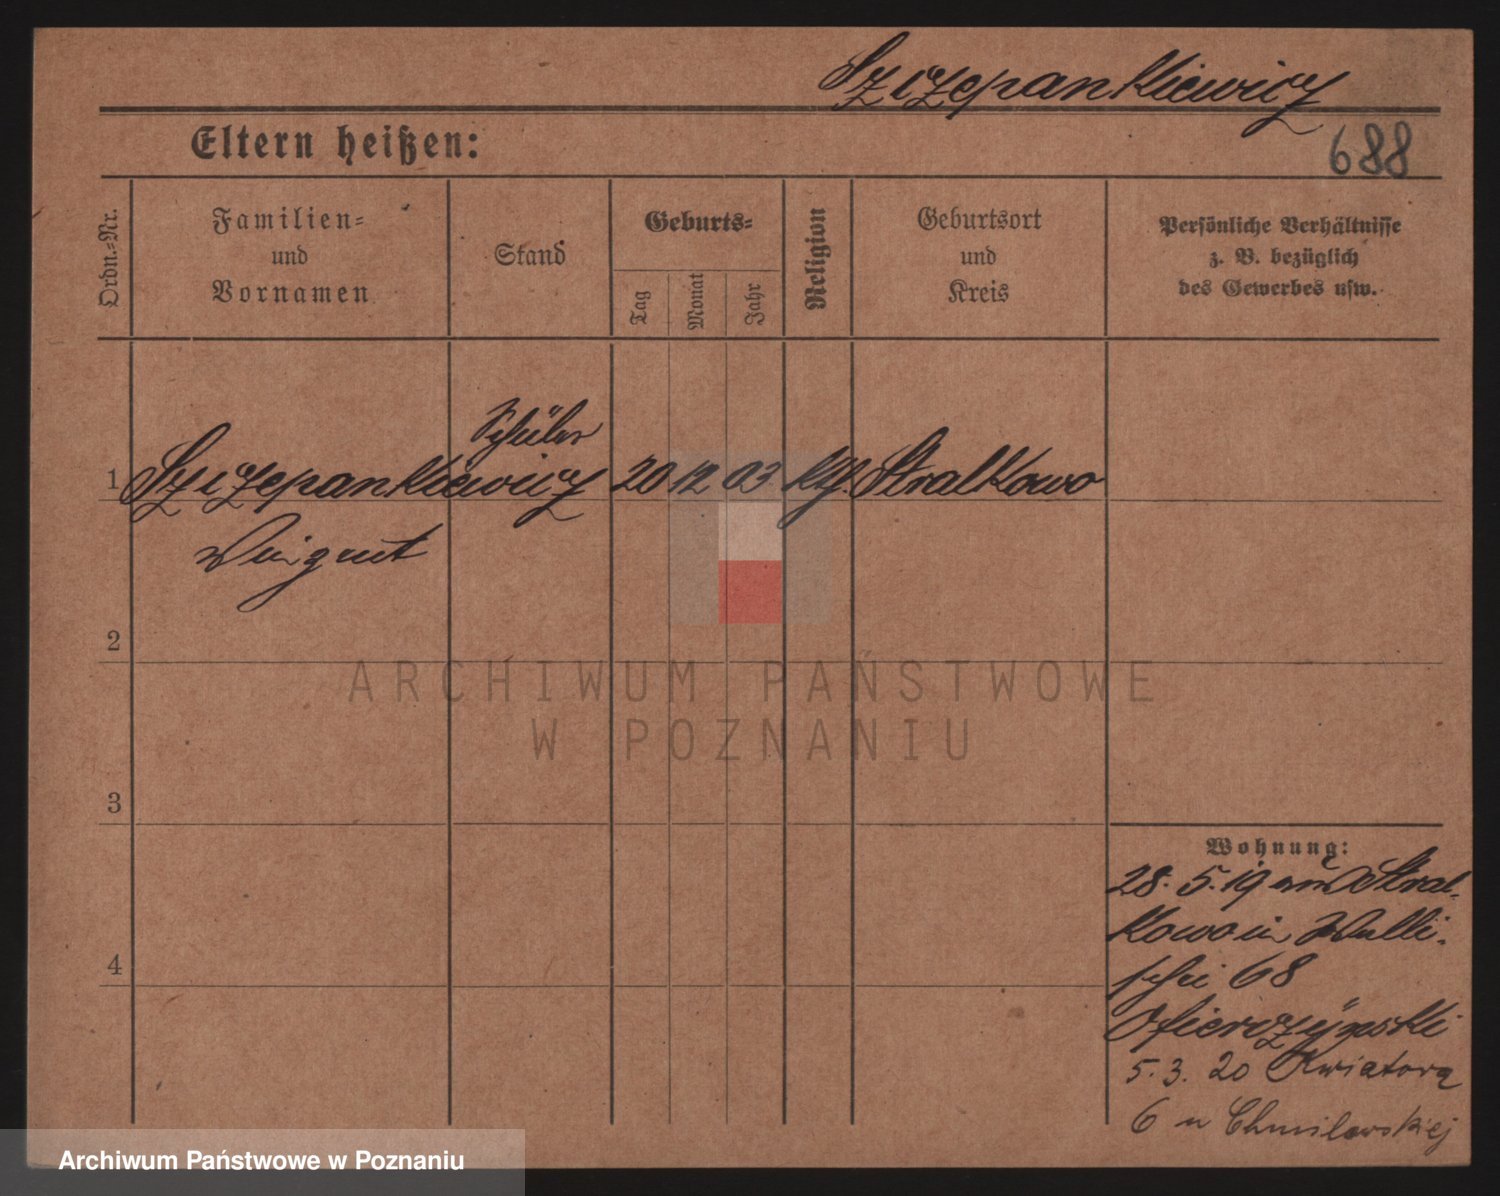 Szczepankiewicz
Eltern heißen:
688
Ordn.-Nr.
Familien-
und
Vornamen
Stand
Geburts-
Tag
Monat
Jahr
Religion
Geburtsort
und
Kreis
Persönliche Verhältnisse
z. B. bezüglich
des Gewerbes usw.
Schüler
1 Szczepankiewicz 20 12 03 kth. Stralkowo
2
3
4
ARCHIWUM PAŃSTWOWE
W POZNANIU
Wohnung:
28. 5. 19 aus Stral-
kowo in Walli-
schei 68
5. 3. 20 Kwiatowa
6 u Chmilewskiej
Archiwum Państwowe w Poznaniu